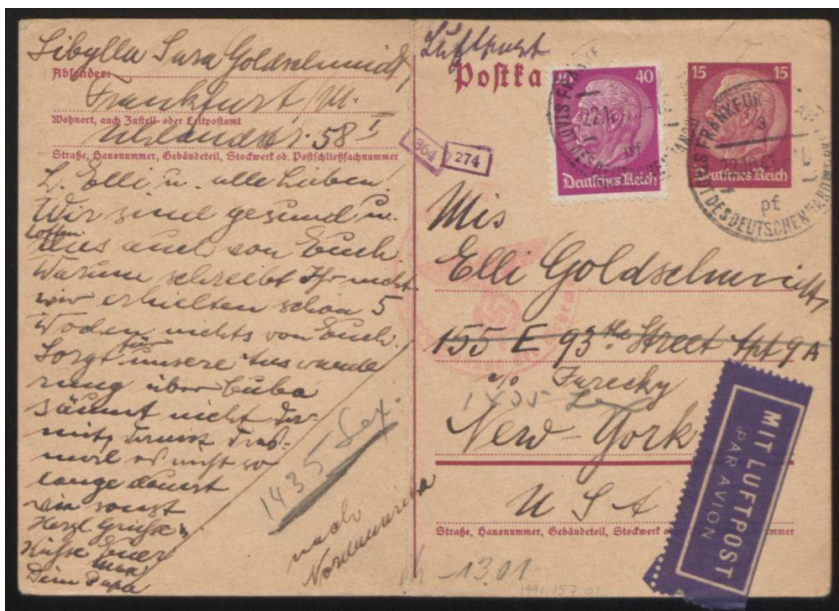 Sibylla Sara Goldschmidt
Absender:
Frankfurt / M.
Wohnort, auch Zustell- oder Leitpostamt
Uhlandstr. 58 I
Straße, Hausnummer, Gebäudeteil, Stockwerk od. Postschließfachnummer
L. Elli u. alle Lieben.
Wir sind gesund u.
hoffen
das auch von Euch.
Warum schreibt Ihr nicht
wir erhielten schon 5
Woche nichts von Euch.
Sorgt für unsere Auswande
rung über Cuba
säumt nicht da-
mit
mal es nicht so
lange dauert
wie sonst
Herzl Grüße
Küsse Euer
Dein Papa
1435 Lex.
nach
Nordamerika
Luftpost
Postka
40 40
Deutsches Reich
15 15
Deutsches Reich
364 274
Mis
Elli Goldschmidt
155 E 93 the Street Apt 9A
c/o Turesky
1435 Lex
New-York
U S A
Straße, Hausnummer, Gebäudeteil, Stockwerk o mmer
MIT LUFTPOST
PAR AVION
-13.01
1991.157.01